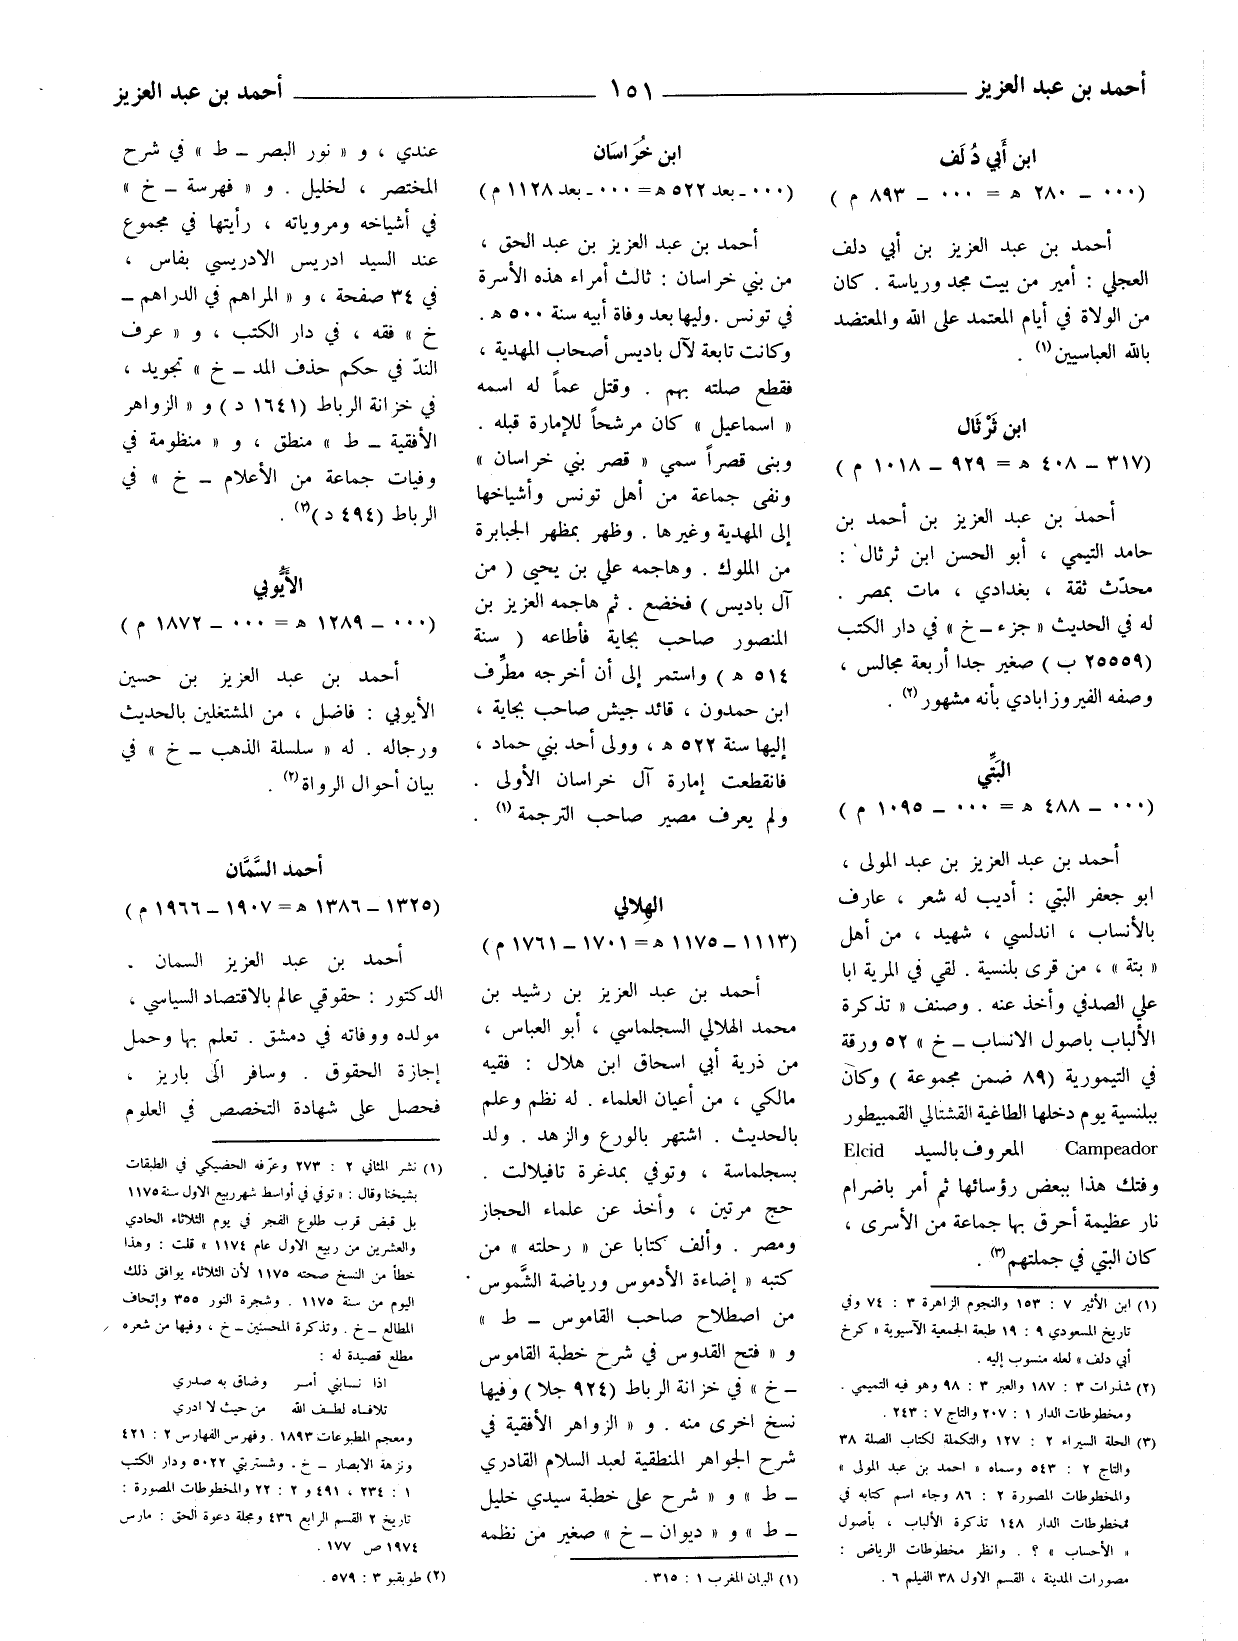 أحمد بن عبد العزيز ١٥١ أحمد بن عبد العزيز
ابن أَبي دُلَف
(٠٠٠ ــ ٢٨٠ هـ = ٠٠٠ ــ ٨٩٣ م)
أحمد بن عبد العزيز بن أبي دلف
العجلي : أمير من بيت مجد ورياسة . كان
من الولاة في أيام المعتمد على الله والمعتضد
بالله العباسيين (١) .
ابن ثَرْثَال
(٣١٧ ــ ٤٠٨ هـ = ٩٢٩ ــ ١٠١٨ م)
أحمد بن عبد العزيز بن أحمد بن
حامد التيمي ، أبو الحسن ابن ثرثال :
محدّث ثقة ، بغدادي ، مات بمصر .
له في الحديث « جزء ــ خ » في دار الكتب
(٢٥٥٥٩ ب) صغير جدا أربعة مجالس ،
وصفه الفيروزابادي بأنه مشهور (٢) .
البَتِّي
(٠٠٠ ــ ٤٨٨ هـ = ٠٠٠ ــ ١٠٩٥ م)
أحمد بن عبد العزيز بن عبد المولى ،
ابو جعفر البتي : أديب له شعر ، عارف
بالأنساب ، اندلسي ، شهيد ، من أهل
« بتة » ، من قرى بلنسية . لقي في المرية ابا
علي الصدفي وأخذ عنه . وصنف « تذكرة
الألباب باصول الانساب ــ خ » ٥٢ ورقة
في التيمورية (٨٩ ضمن مجموعة) وكان
ببلنسية يوم دخلها الطاغية القشتالي القمبيطور
Campeador المعروف بالسيد Elcid
وفتك هذا ببعض رؤسائها ثم أمر باضرام
نار عظيمة أحرق بها جماعة من الأسرى ،
كان البتي في جملتهم (٣) .
(١) ابن الأثير ٧ : ١٥٣ والنجوم الزاهرة ٣ : ٧٤ وفي
تاريخ المسعودي ٩ : ١٩ طبعة الجمعية الآسيوية « كرخ
أبي دلف » لعله منسوب إليه .
(٢) شذرات ٣ : ١٨٧ والعبر ٣ : ٩٨ وهو فيه التميمي .
ومخطوطات الدار ١ : ٢٠٧ والتاج ٧ : ٢٤٣ .
(٣) الحلة السيراء ٢ : ١٢٧ والتكملة لكتاب الصلة ٣٨
والتاج ٢ : ٥٤٣ وسماه « احمد بن عبد المولى »
والمخطوطات المصورة ٢ : ٨٦ وجاء اسم كتابه في
مخطوطات الدار ١٤٨ تذكرة الألباب ، بأصول
« الأحساب » ؟ . وانظر مخطوطات الرياض :
مصورات المدينة ، القسم الاول ٣٨ الفيلم ٦ .
ابن خُرَاسَان
(٠٠٠ ــ بعد ٥٢٢ هـ = ٠٠٠ ــ بعد ١١٢٨ م)
أحمد بن عبد العزيز بن عبد الحق ،
من بني خراسان : ثالث أمراء هذه الأسرة
في تونس . وليها بعد وفاة أبيه سنة ٥٠٠ هـ .
وكانت تابعة لآل باديس أصحاب المهدية ،
فقطع صلته بهم . وقتل عماً له اسمه
« اسماعيل » كان مرشحاً للإمارة قبله .
وبنى قصراً سمي « قصر بني خراسان »
ونفى جماعة من أهل تونس وأشياخها
إلى المهدية وغيرها . وظهر بمظهر الجبابرة
من الملوك . وهاجمه علي بن يحيى (من
آل باديس) فخضع . ثم هاجمه العزيز بن
المنصور صاحب بجاية فأطاعه (سنة
٥١٤ هـ) واستمر إلى أن أخرجه مطرِّف
ابن حمدون ، قائد جيش صاحب بجاية ،
إليها سنة ٥٢٢ هـ ، وولى أحد بني حماد ،
فانقطعت إمارة آل خراسان الأولى .
ولم يعرف مصير صاحب الترجمة (١) .
الهِلالي
(١١١٣ ــ ١١٧٥ هـ = ١٧٠١ ــ ١٧٦١ م)
أحمد بن عبد العزيز بن رشيد بن
محمد الهلالي السجلماسي ، أبو العباس ،
من ذرية أبي اسحاق ابن هلال : فقيه
مالكي ، من أعيان العلماء . له نظم وعلم
بالحديث . اشتهر بالورع والزهد . ولد
بسجلماسة ، وتوفي بمدغرة تافيلالت .
حج مرتين ، وأخذ عن علماء الحجاز
ومصر . وألف كتابا عن « رحلته » من
كتبه « إضاءة الأدموس ورياضة الشَّموس
من اصطلاح صاحب القاموس ــ ط »
و « فتح القدوس في شرح خطبة القاموس
ــ خ » في خزانة الرباط (٩٢٤ جلا) وفيها
نسخ اخرى منه . و « الزواهر الأفقية في
شرح الجواهر المنطقية لعبد السلام القادري
ــ ط » و « شرح على خطبة سيدي خليل
ــ ط » و « ديوان ــ خ » صغير من نظمه
(١) البيان المغرب ١ : ٣١٥ .
عندي ، و « نور البصر ــ ط » في شرح
المختصر ، لخليل . و « فهرسة ــ خ »
في أشياخه ومروياته ، رأيتها في مجموع
عند السيد ادريس الادريسي بفاس ،
في ٣٤ صفحة ، و « المراهم في الدراهم ــ
خ » فقه ، في دار الكتب ، و « عرف
الندّ في حكم حذف المد ــ خ » تجويد ،
في خزانة الرباط (١٦٤١ د) و « الزواهر
الأفقية ــ ط » منطق ، و « منظومة في
وفيات جماعة من الأعلام ــ خ » في
الرباط (٤٩٤ د) (٢) .
الأَيُّوبي
(٠٠٠ ــ ١٢٨٩ هـ = ٠٠٠ ــ ١٨٧٢ م)
أحمد بن عبد العزيز بن حسين
الأيوبي : فاضل ، من المشتغلين بالحديث
ورجاله . له « سلسلة الذهب ــ خ » في
بيان أحوال الرواة (٢) .
أحمد السَّمَّان
(١٣٢٥ ــ ١٣٨٦ هـ = ١٩٠٧ ــ ١٩٦٦ م)
أحمد بن عبد العزيز السمان .
الدكتور : حقوقي عالم بالاقتصاد السياسي ،
مولده ووفاته في دمشق . تعلم بها وحمل
إجازة الحقوق . وسافر الى باريز ،
فحصل على شهادة التخصص في العلوم
(١) نشر المثاني ٢ : ٢٧٣ وعرّفه الحضيكي في الطبقات
بشيخنا وقال : « توفي في أواسط شهر ربيع الاول سنة ١١٧٥
بل قبض قرب طلوع الفجر في يوم الثلاثاء الحادي
والعشرين من ربيع الاول عام ١١٧٤ » قلت : وهذا
خطأ من النسخ صحته ١١٧٥ لأن الثلاثاء يوافق ذلك
اليوم من سنة ١١٧٥ . وشجرة النور ٣٥٥ وإتحاف
المطالع ــ خ . وتذكرة المحسنين ــ خ ، وفيها من شعره
مطلع قصيدة له :
اذا نسابني أمر وضاق به صدري
تلافاه لطف الله من حيث لا ادري
ومعجم المطبوعات ١٨٩٣ . وفهرس الفهارس ٢ : ٤٢١
ونزهة الابصار ــ خ . وشستربتي ٥٠٢٢ ودار الكتب
١ : ٢٣٤ ، ٤٩١ و ٢ : ٢٢ والمخطوطات المصورة :
تاريخ ٢ القسم الرابع ٤٣٦ ومجلة دعوة الحق : مارس
١٩٧٤ ص ١٧٧ .
(٢) طوبقبو ٣ : ٥٧٩ .